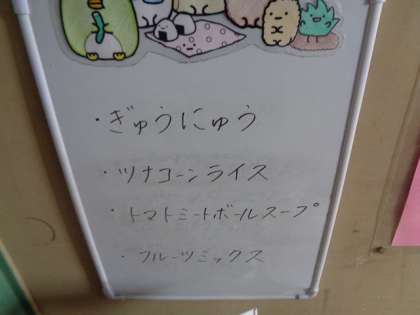 ・ぎゅうにゅう
・ツナコーンライス
・トマトミートボールスープ
・フルーツミックス